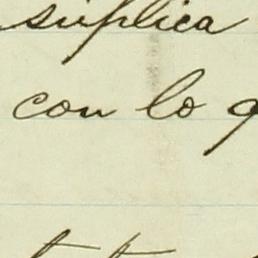 suplica
con lo q